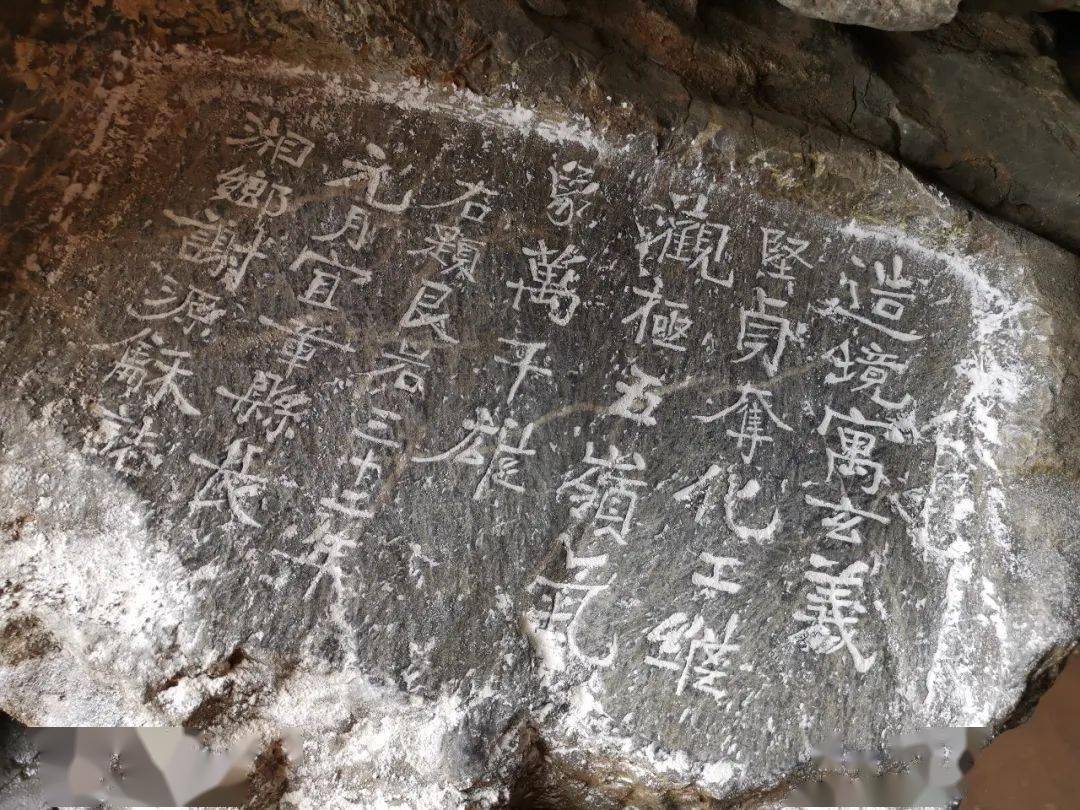 造境寓玄義
堅貞奪化工維
觀極五嶺氣
象萬千雄
右題艮岩三十二年
元月宜章縣長
湘鄉謝源龢誌